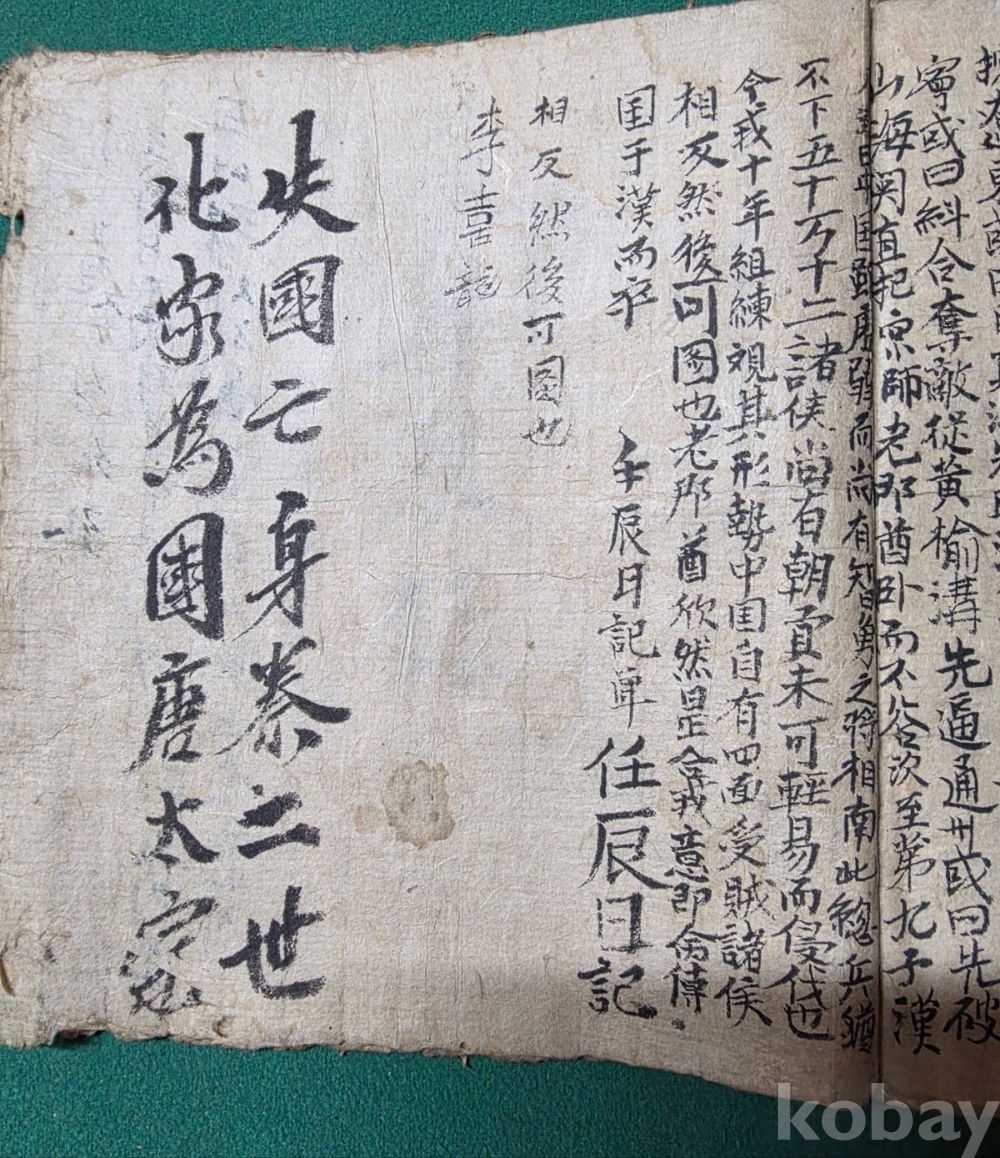 寧或曰糾合奪敵從黃榆溝先逼通州或曰先破
山海関直抱京師老那酋卧而不答次至第九子漢
国雖 而尚有智勇之将相南此総兵猶
不下五十万十二諸侯尚有朝貢未可輕易而侵伐也
今我十年組練視其形勢中国自有四面受賊諸侯
相反然後可圖也老那酋欣然是合我意即命傳
国于漢而卒 壬辰日記草 任辰日記
相反然後可圖也
李喜龍
失國亡身秦二世
化家為國唐太宗
kobay